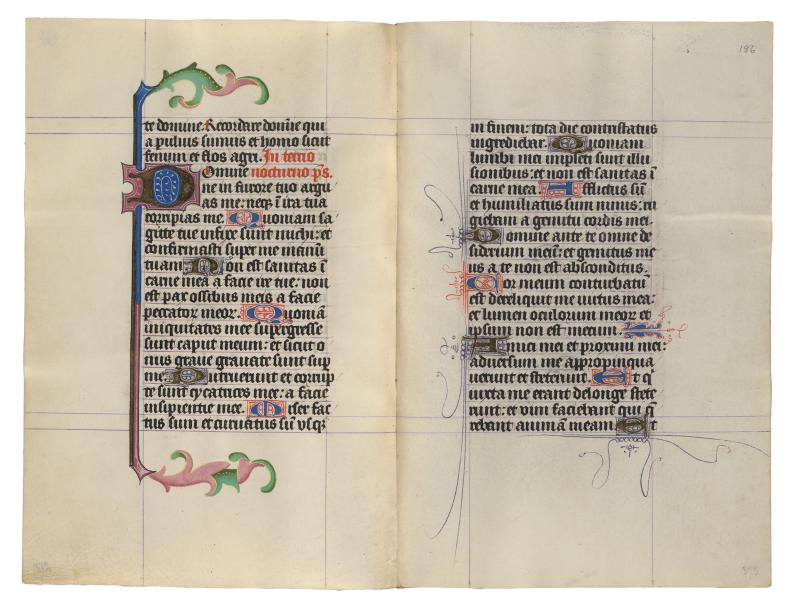 te domine. Recordare domīe qui
a puluis sumus et homo sicut
fenum et flos agri. In tercio
Domine nocturno ps.
ne in furore tuo argu
as me: neq; ī ira tua
corripias me. Quoniam sa
gitte tue infixe sunt michi: et
confirmasti super me manū
tuam Non est sanitas ī
carne mea a facie ire tue: non
est pax ossibus meis a facie
peccator meor. Quoniā
iniquitates mee supergresse
sunt caput meum: et sicut o
nus graue grauate sunt sup
me. Putruerunt et corrup
te sunt cycatrices mee: a facie
insipientie mee. Miser fac
tus sum et curuatus sū vsqz
196
in finem: tota die contristatus
ingrediebar. Quoniam
lumbi mei impleti sunt illu
sionibus: et non est sanitas ī
carne mea. Afflictus sū
et humiliatus sum nimis: ru
giebam a gemitu cordis mei
Domine ante te omne de
siderium meū: et gemitus me
us a te non est absconditus.
Cor meum conturbatū
est dereliquit me uirtus mea:
et lumen oculorum meor et
ipsum non est mecum.
Amici mei et proximi mei:
aduersum me appropinqua
uerunt et steterunt. Et q
iuxta me erant delonge stete
runt: et uim faciebant qui q
rebant animā meam. Et